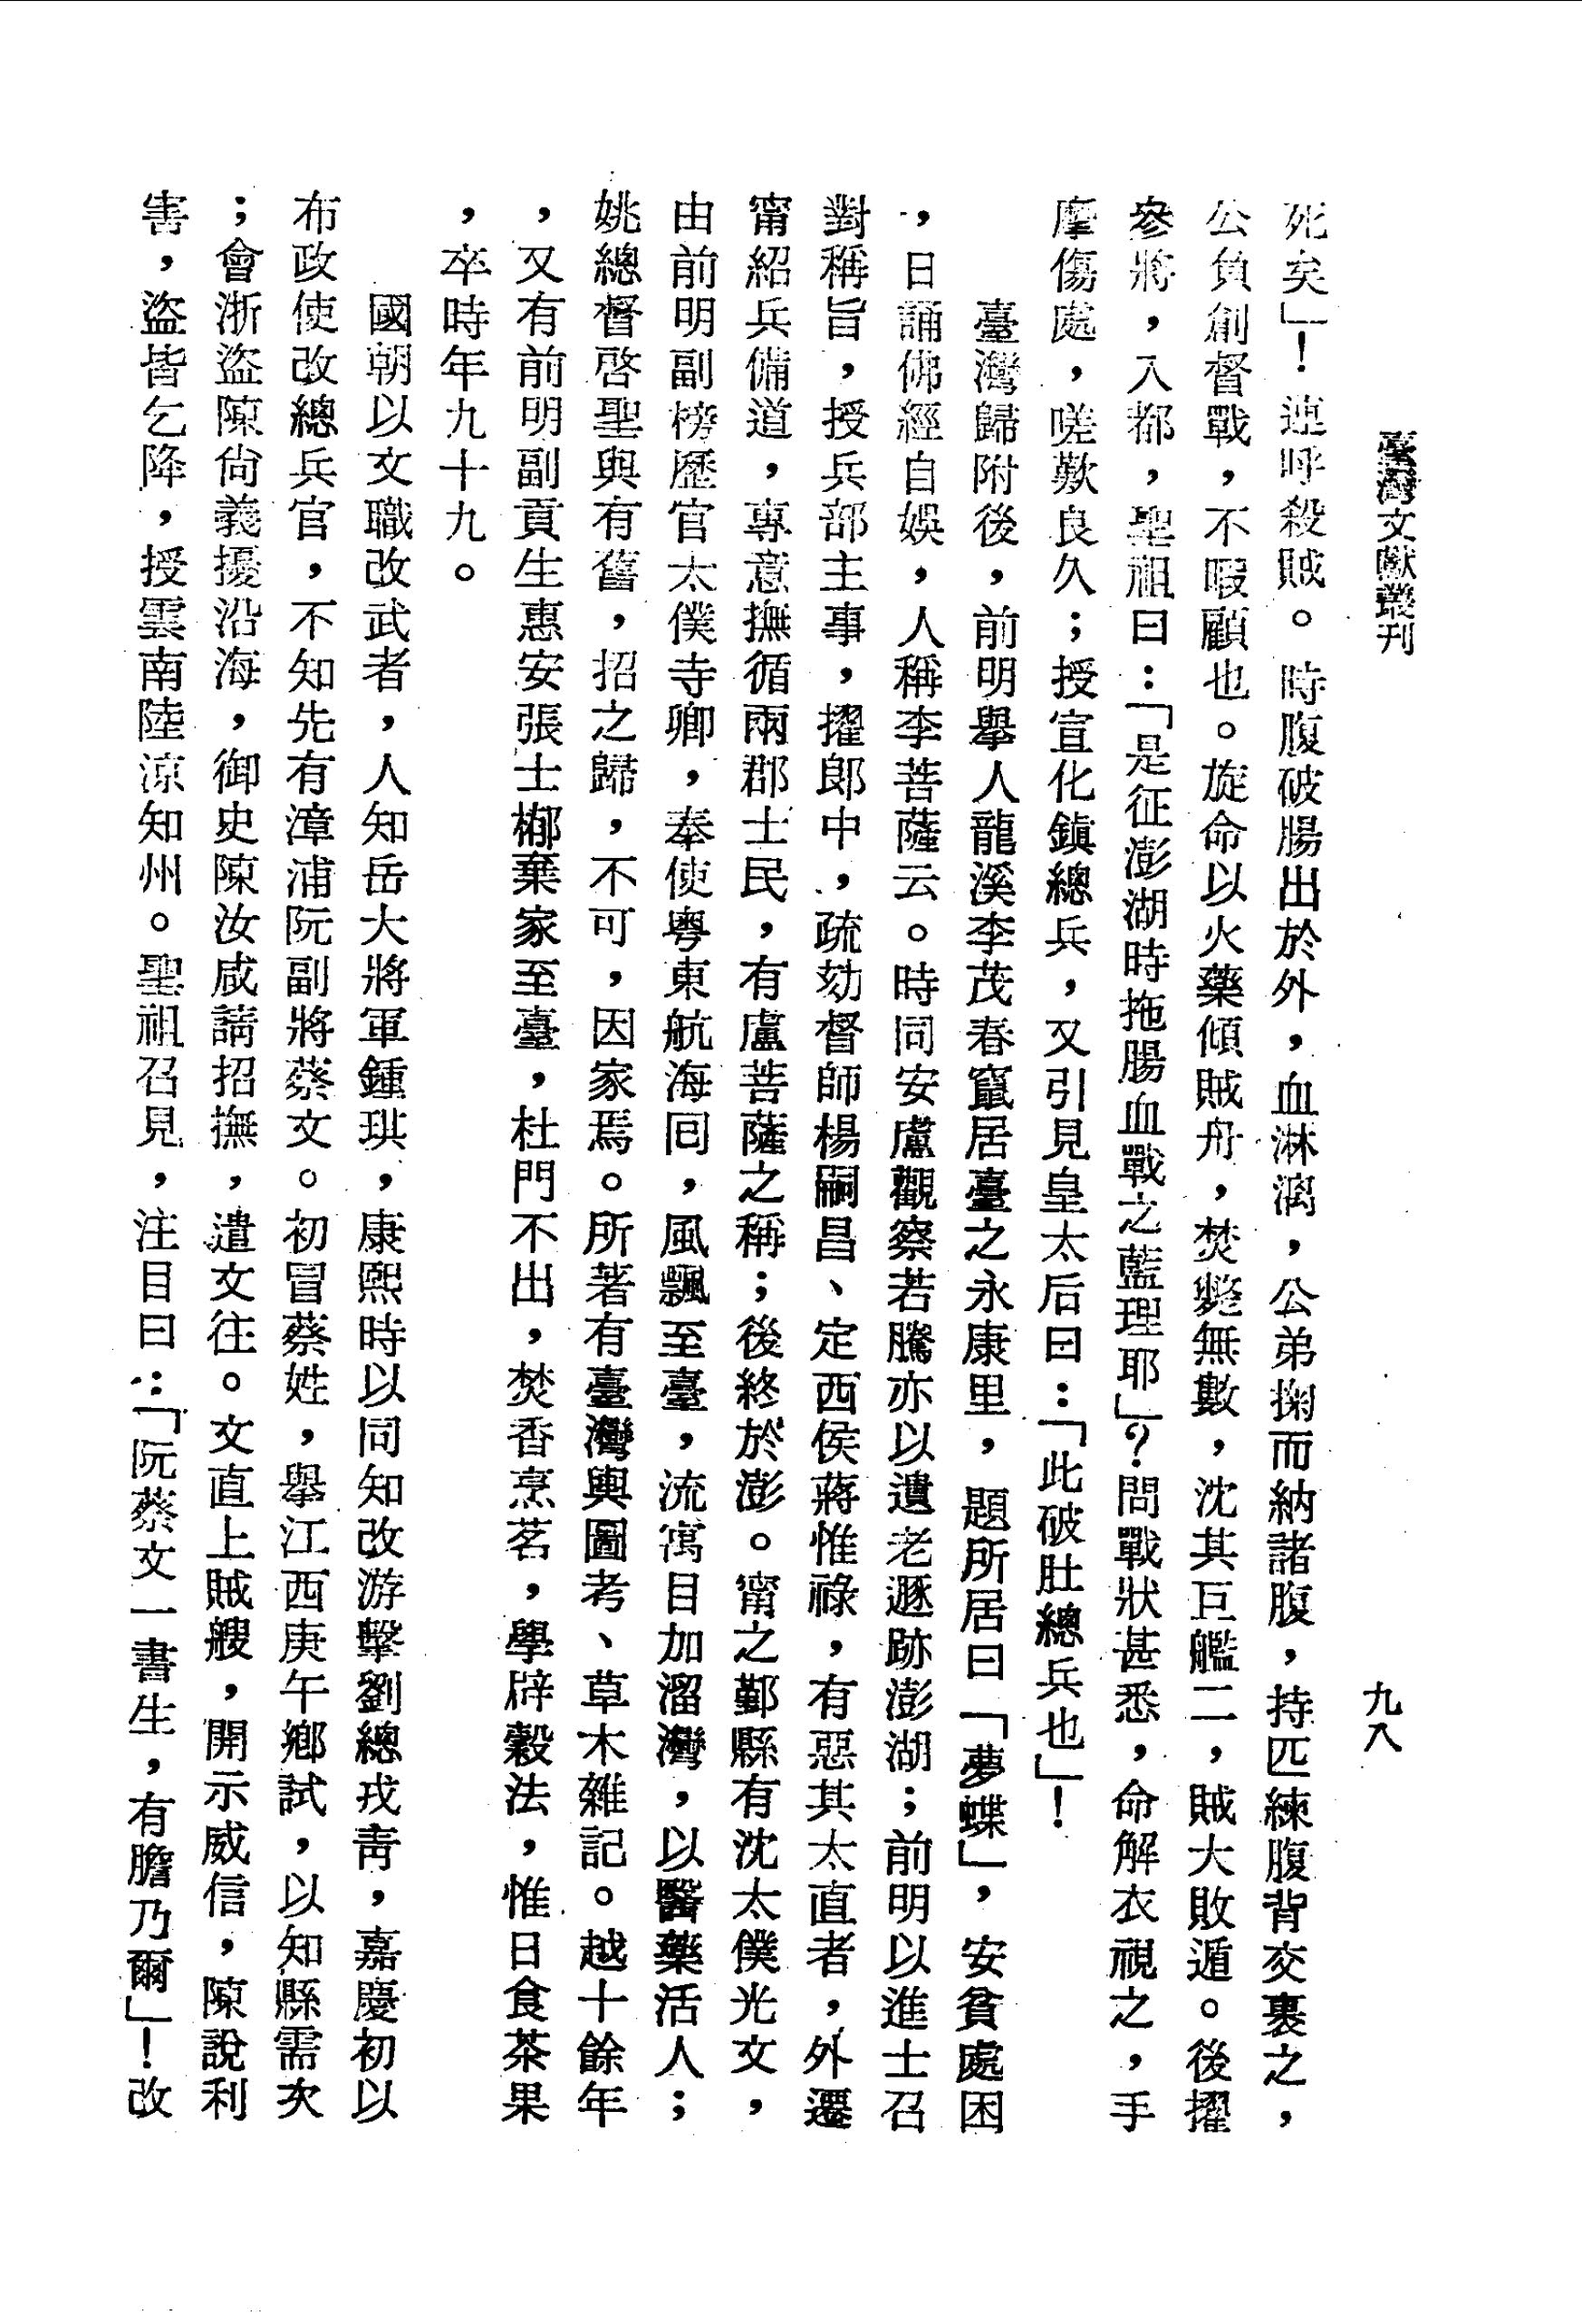 臺灣文獻叢刊
九八
死矣」！連呼殺賊。時腹破腸出於外，血淋漓，公弟掬而納諸腹，持匹練腹背交裹之，
公負創督戰，不暇顧也。旋命以火藥傾賊舟，焚斃無數，沈其巨艦二，賊大敗遁。後擢
參將，入都，聖祖曰：「是征澎湖時拖腸血戰之藍理耶」？問戰狀甚悉，命解衣視之，手
摩傷處，嗟歎良久；授宣化鎮總兵，又引見皇太后曰：「此破肚總兵也」！
臺灣歸附後，前明舉人龍溪李茂春竄居臺之永康里，題所居曰「夢蝶」，安貧處困
，日誦佛經自娛，人稱李菩薩云。時同安盧觀察若騰亦以遺老遯跡澎湖；前明以進士召
對稱旨，授兵部主事，擢郎中，疏劾督師楊嗣昌、定西侯蔣惟祿，有惡其太直者，外遷
甯紹兵備道，專意撫循兩郡士民，有盧菩薩之稱；後終於澎。甯之鄞縣有沈太僕光文，
由前明副榜歷官太僕寺卿，奉使粵東航海囘，風飄至臺，流寓目加溜灣，以醫藥活人；
姚總督啓聖與有舊，招之歸，不可，因家焉。所著有臺灣輿圖考、草木雜記。越十餘年
，又有前明副貢生惠安張士梛棄家至臺，杜門不出，焚香烹茗，學辟穀法，惟日食茶果
，卒時年九十九。
國朝以文職改武者，人知岳大將軍鍾琪，康熙時以同知改游擊劉總戎靑，嘉慶初以
布政使改總兵官，不知先有漳浦阮副將蔡文。初冒蔡姓，舉江西庚午鄉試，以知縣需次
；會浙盜陳尙義擾沿海，御史陳汝咸請招撫，遣文往。文直上賊艘，開示威信，陳說利
害，盜皆乞降，授雲南陸涼知州。聖祖召見，注目曰：「阮蔡文一書生，有膽乃爾」！改